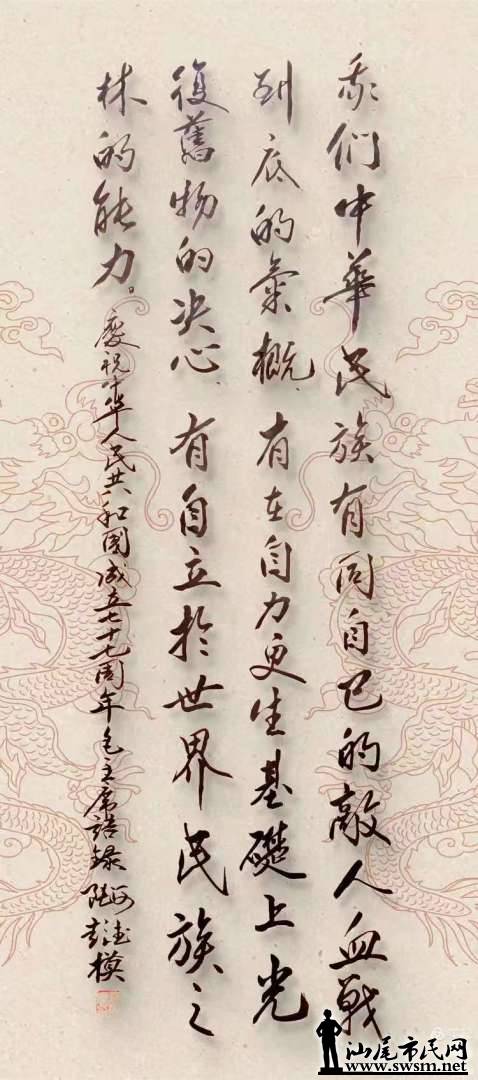 我们中華民族有同自己的敵人血戰
到底的氣概、有在自力更生基礎上光
復舊物的决心、有自立於世界民族之
林的能力。
慶祝中华人民共和國成立七十七周年毛主席語錄 彭模
汕尾市民网
www.swsm.net